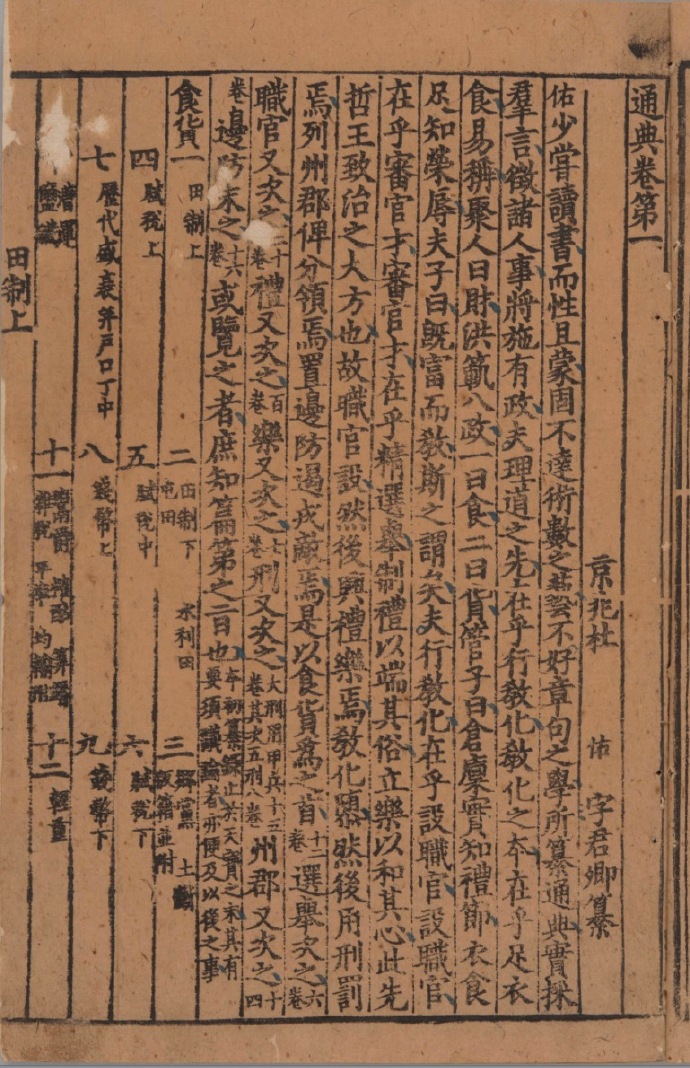 通典卷第一
京兆杜 佑 字君卿纂
佑少嘗讀書而性且蒙固不達術數之藝不好章句之學所纂通典實採
羣言徵諸人事將施有政夫理道之先在乎行教化教化之本在乎足衣
食易稱聚人曰財洪範八政一曰食二曰貨管子曰倉廩實知禮節衣食
足知榮辱夫子曰既富而教斯之謂矣夫行教化在乎設職官設職官
在乎審官才審官才在乎精選舉制禮以端其俗立樂以和其心此先
哲王致治之大方也故職官設然後興禮樂焉教化隳然後用刑罰
焉列州郡俾分領焉置邊防遏戎敵焉是以食貨為之首十二卷選舉次之六卷
職官又次之二十卷禮又次之百卷樂又次之七卷刑又次之大刑用甲兵十三卷其次五刑八卷州郡又次之十四
卷邊防末之十六卷或覽之者庶知篇第之旨也本初纂錄止於天寶之末其有要須議論者亦便及以後之事
食貨一 田制上 二 田制下 水利田 屯田 三 鄉黨 土斷 版籍並附
四 賦稅上 五 賦稅中 六 賦稅下
七 歷代盛衰年戶口丁中 八 錢幣上 九 錢幣下
漕運 鹽鐵 十一 鬻爵 榷酤 算緡 雜稅 平準 均輸附 十二 輕重
田制上